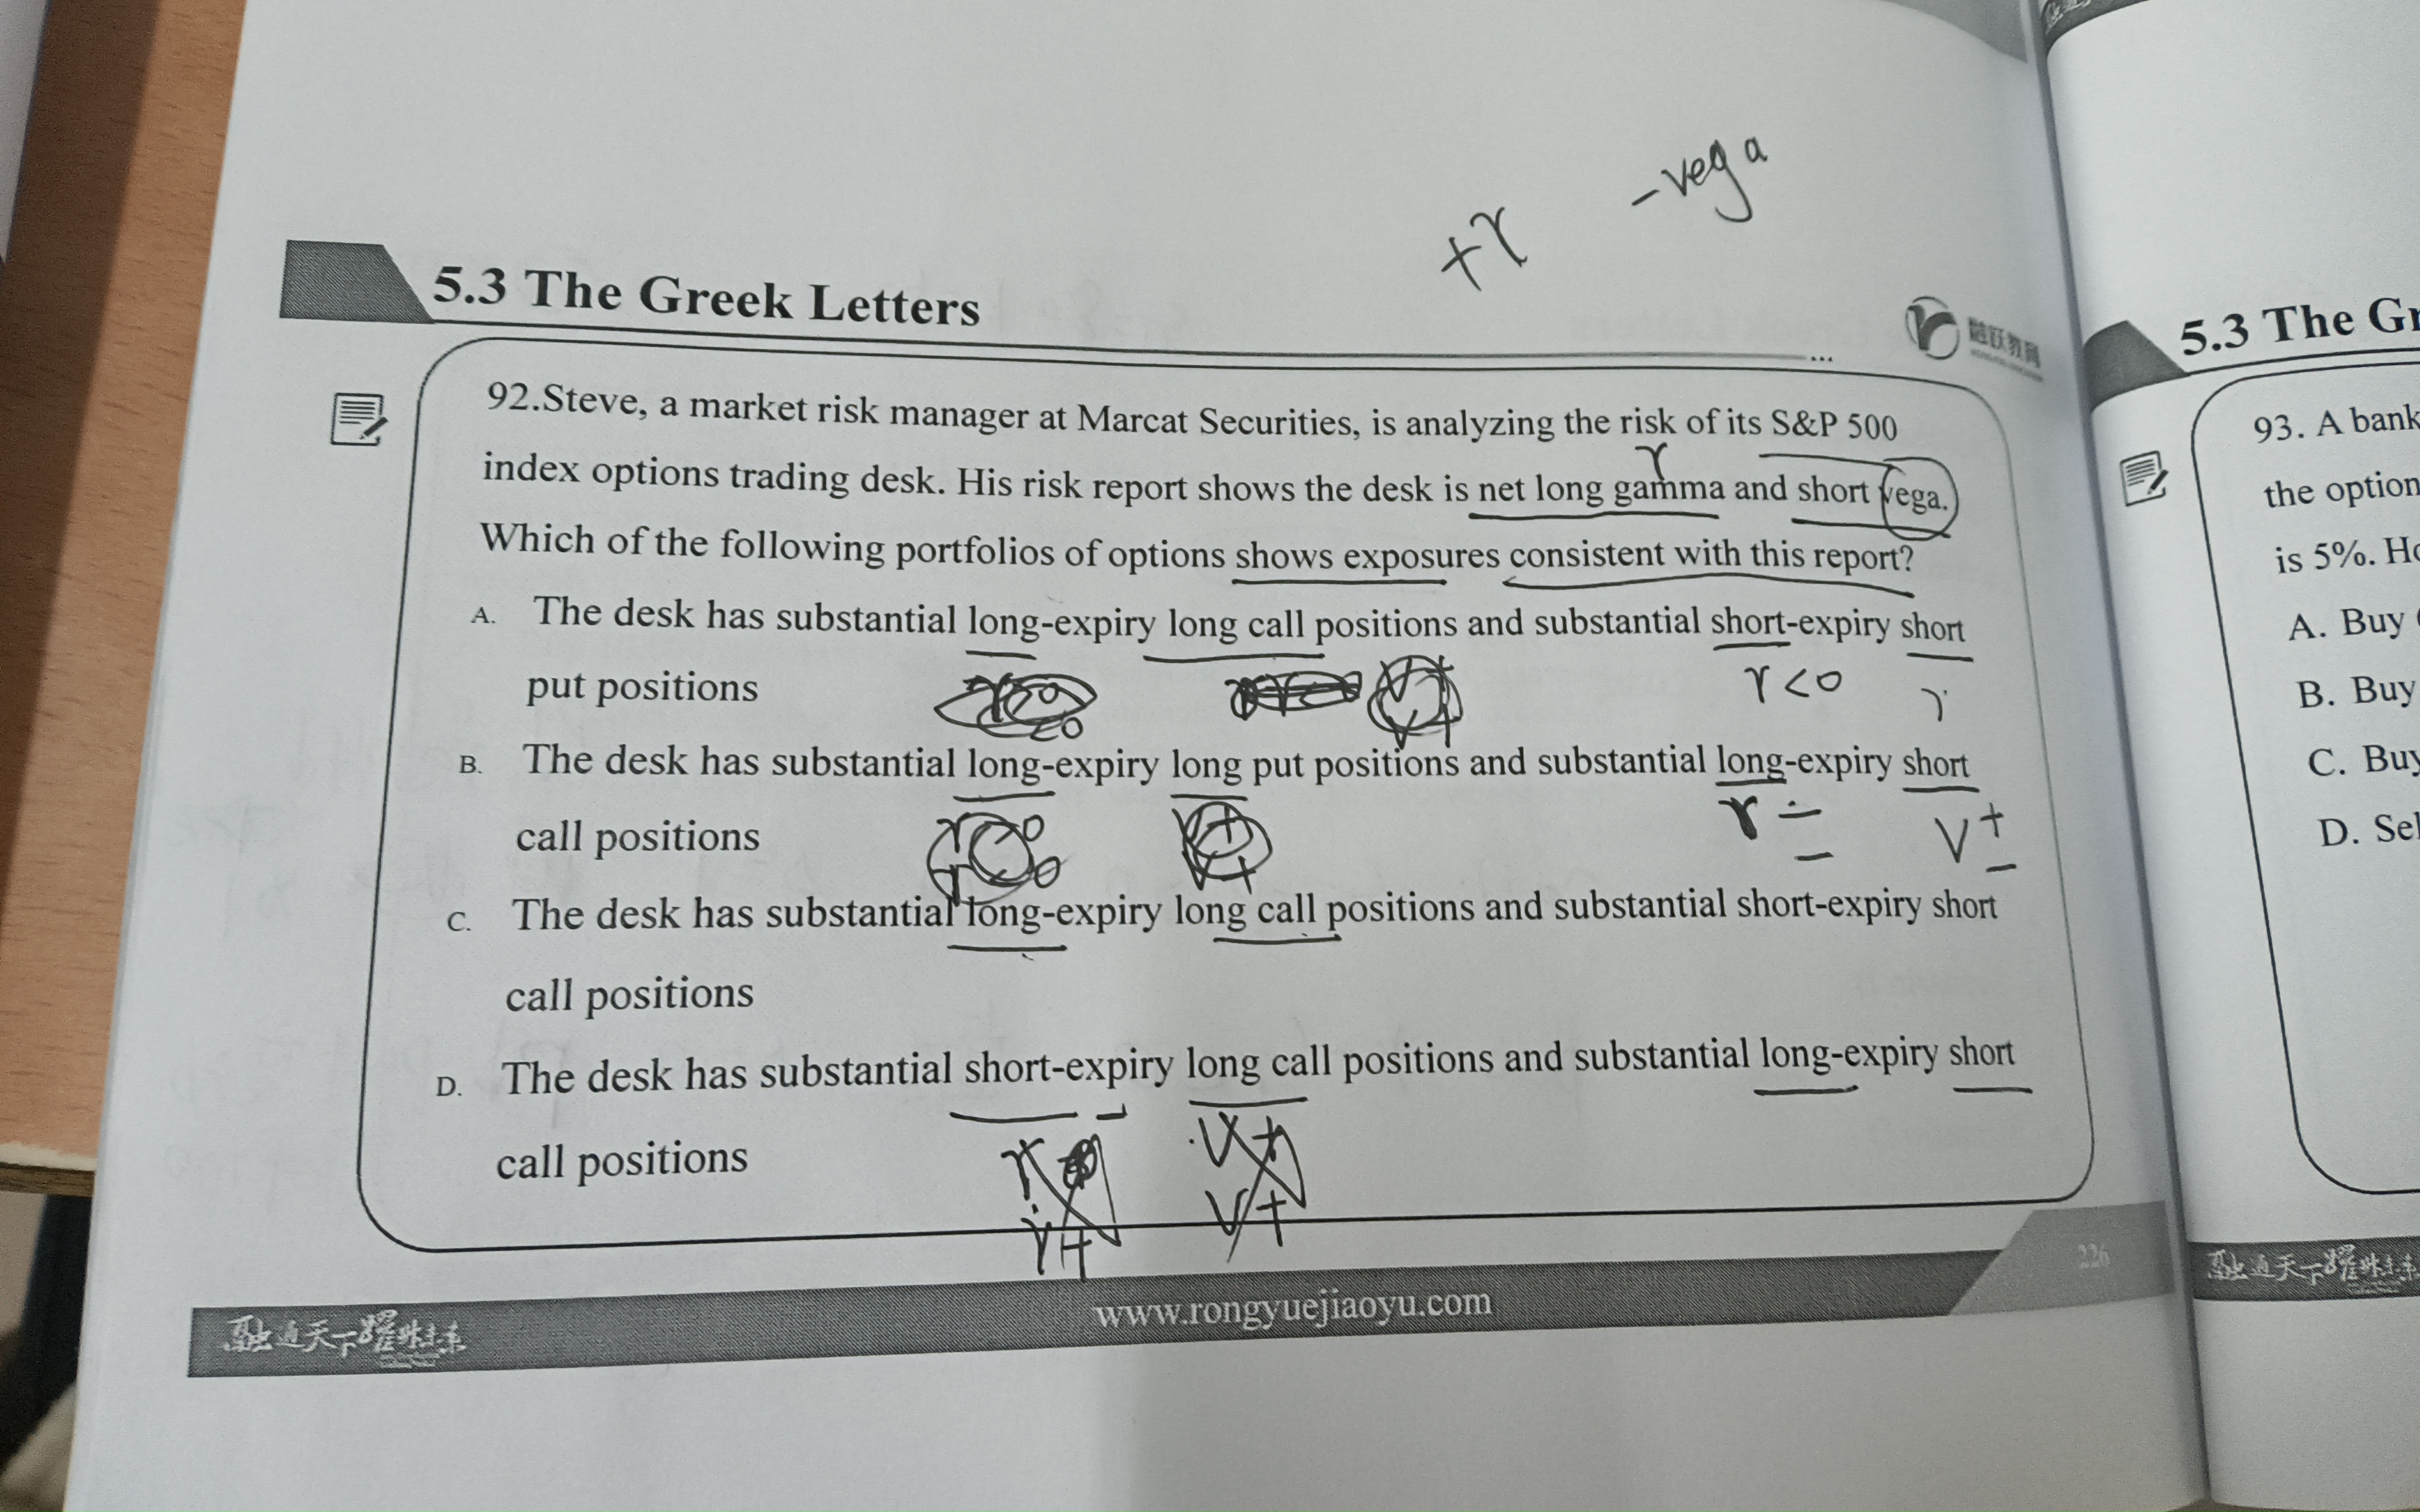 +γ
-vega
5.3 The Greek Letters
融跃教育
92.Steve, a market risk manager at Marcat Securities, is analyzing the risk of its S&P 500
γ
index options trading desk. His risk report shows the desk is net long gamma and short vega.
Which of the following portfolios of options shows exposures consistent with this report?
A. The desk has substantial long-expiry long call positions and substantial short-expiry short
put positions
γ<0
γ
B. The desk has substantial long-expiry long put positions and substantial long-expiry short
call positions
V+
C. The desk has substantial long-expiry long call positions and substantial short-expiry short
call positions
D. The desk has substantial short-expiry long call positions and substantial long-expiry short
call positions
V+
V+
γ+
226
融通天下 耀世未来
www.rongyuejiaoyu.com
5.3 The Gr
93. A bank
the option
is 5%. Ho
A. Buy
B. Buy
C. Buy
D. Sel